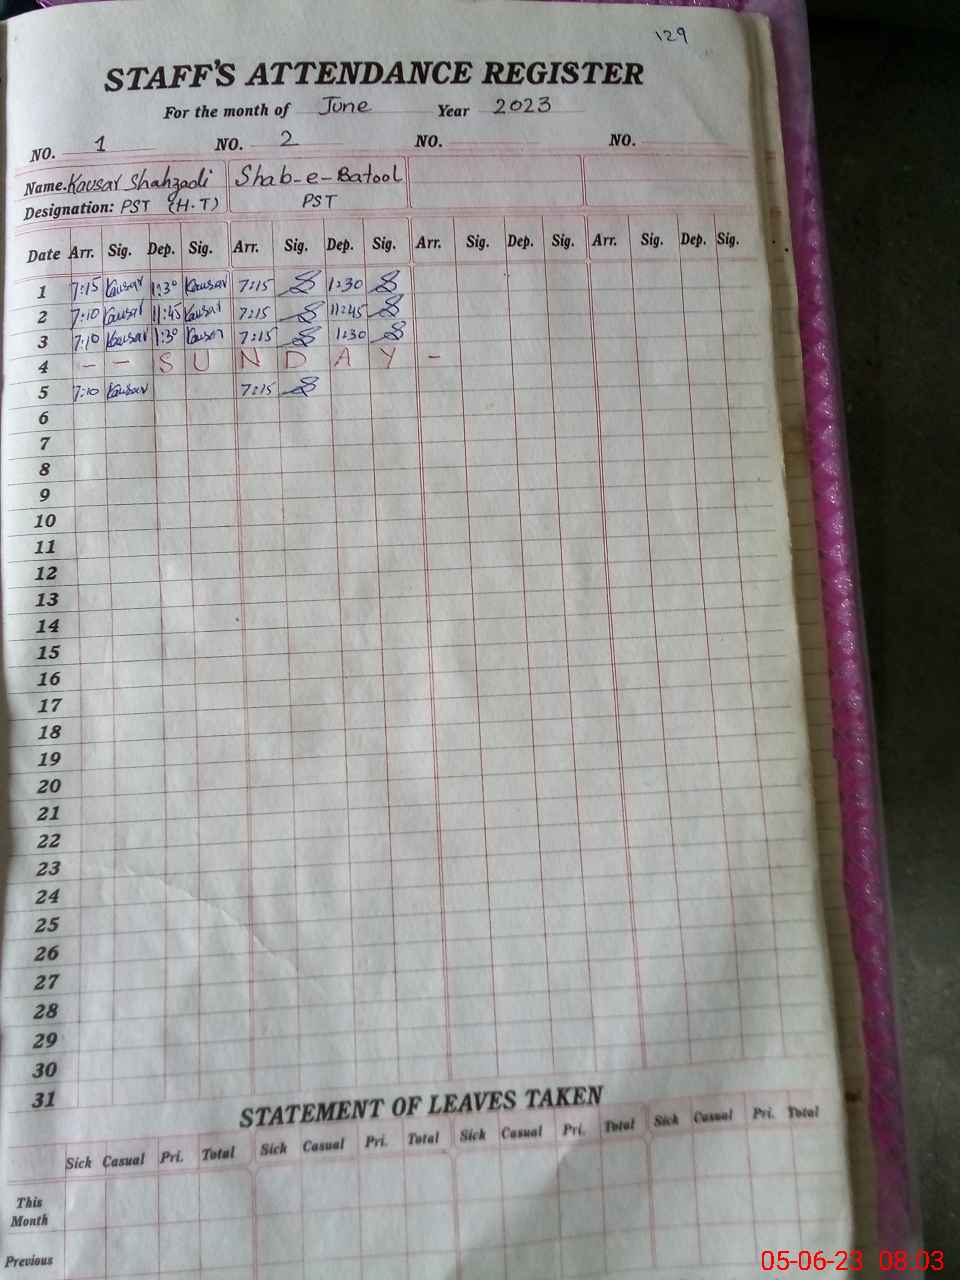 129
STAFF'S ATTENDANCE REGISTER
For the month of June Year 2023
NO. 1 NO. 2 NO. NO.
Name. Kausar Shahzadi Shab-e-Batool
Designation: PST (H.T) PST
Date Arr. Sig. Dep. Sig. Arr. Sig. Dep. Sig. Arr. Sig. Dep. Sig. Arr. Sig. Dep. Sig.
1 7:15 Kausar 1:30 Kausar 7:15 1:30
2 7:10 Kausar 11:45 Kausar 7:15 11:45
3 7:10 Kausar 1:30 Kausar 7:15 1:30
4 - - S U N D A Y -
5 7:10 Kausar 7:15
6
7
8
9
10
11
12
13
14
15
16
17
18
19
20
21
22
23
24
25
26
27
28
29
30
31
STATEMENT OF LEAVES TAKEN
Sick Casual Pri. Total Sick Casual Pri. Total Sick Casual Pri. Total Sick Casual Pri. Total
This
Month
Previous
05-06-23 08:03